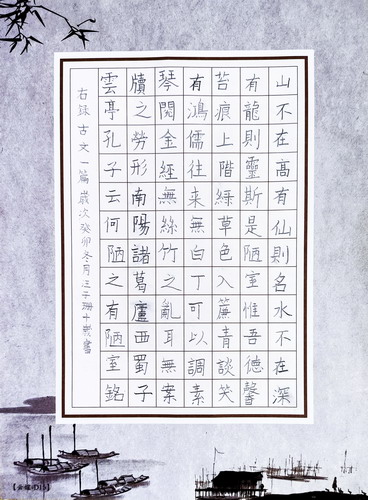 山不在高有仙則名水不在深
有龍則靈斯是陋室惟吾德馨
苔痕上階綠草色入簾青談笑
有鴻儒往来無白丁可以調素
琴閱金經無絲竹之亂耳無案
牘之勞形南陽諸葛廬西蜀子
雲亭孔子云何陋之有陋室銘
右録古文一篇歲次癸卯冬月汪子珊十歲書